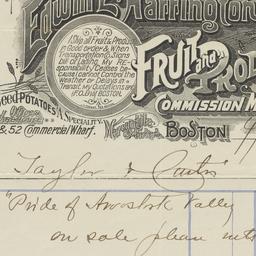 Edwin E. Harrington
I Ship all Fruit & Produce
in Good order &, When
Transportation Co's Sign
bill of Lading, My Re-
sponsibility Ceases, be-
cause I cannot Control the
Weather or Delays in
Transit. My Quotations are
F.O.B. in Boston.
Fruit and Pro
Commission M
Seed Potatoes A Specialty
& 52 Commercial Wharf.
Boston
Taylor &
"Pride of Aroostook Valley
on sale please